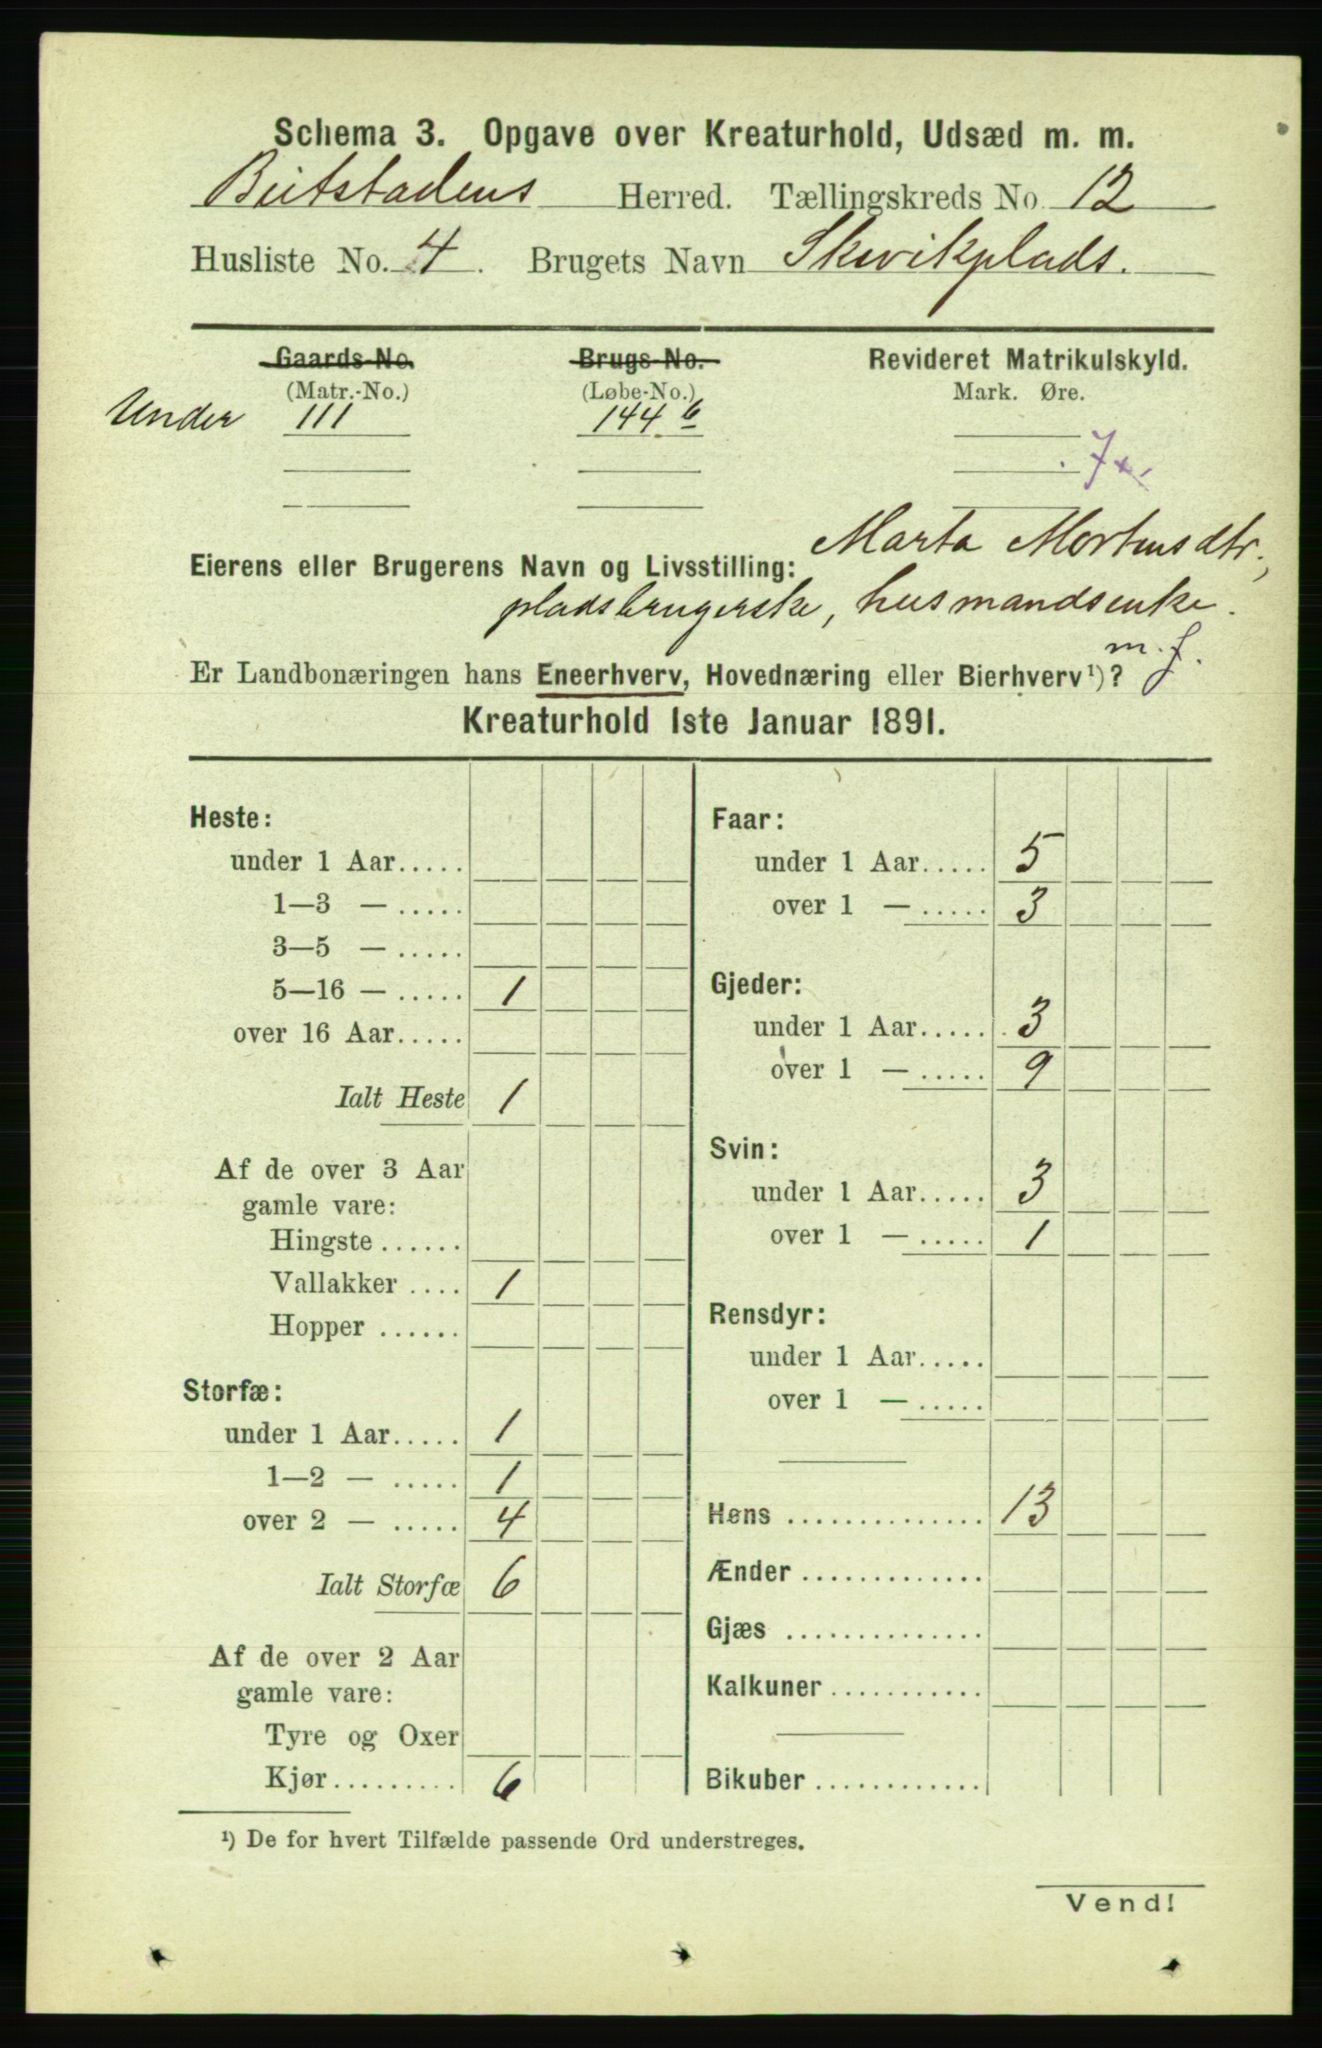 Schema 3. Opgave over Kreaturhold, Udsæd m. m.
Beitstadens Herred. Tællingskreds No. 12
Husliste No. 4. Brugets Navn Skevikplads.
Gaards-No. Brugs-No. Revideret Matrikulskyld.
(Matr.-No.) (Løbe-No.) Mark. Øre.
Under 111 144 b
Marta Mortensdtr.,
Eierens eller Brugerens Navn og Livsstilling:
pladsbrugerske, husmandsenke.
m. f.
Er Landbonæringen hans Eneerhverv, Hovednæring eller Bierhverv¹)?
Kreaturhold 1ste Januar 1891.
Heste:
under 1 Aar.....
1—3 — .....
3—5 — .....
5—16 — ..... 1
over 16 Aar.....
Ialt Heste 1
Af de over 3 Aar
gamle vare:
Hingste ......
Vallakker .... 1
Hopper ......
Storfæ:
under 1 Aar..... 1
1—2 — ..... 1
over 2 — ..... 4
Ialt Storfæ 6
Af de over 2 Aar
gamle vare:
Tyre og Oxer
Kjør......... 6
Faar:
under 1 Aar..... 5
over 1 — ..... 3
Gjeder:
under 1 Aar..... 3
over 1 — ..... 9
Svin:
under 1 Aar..... 3
over 1 — ..... 1
Rensdyr:
under 1 Aar.....
over 1 — .....
Høns .............. 13
Ænder .............
Gjæs ..............
Kalkuner ...........
Bikuber ............
¹) De for hvert Tilfælde passende Ord understreges.
Vend!